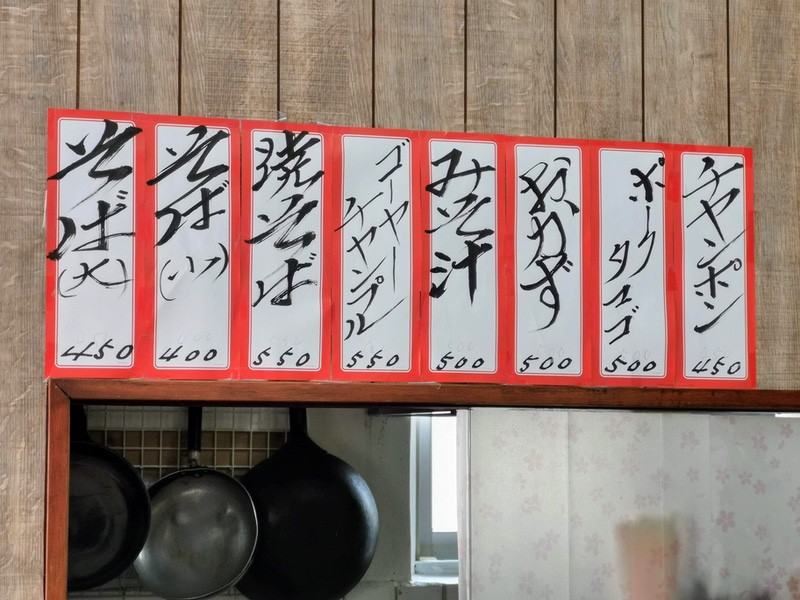 チャンポン
450
ポーク
タマゴ
500
おかず
500
みそ汁
500
ゴーヤー
チャンプル
550
焼そば
550
そば
(小)
400
そば
(大)
450